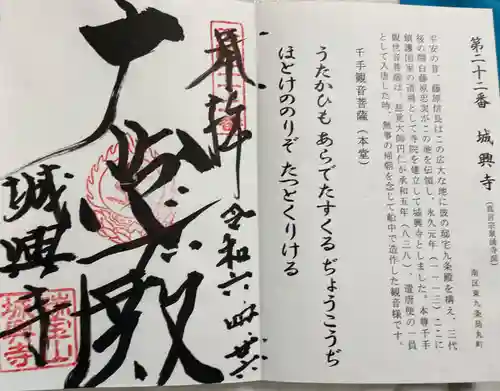 第二十二番 城興寺
(真言宗泉涌寺派)
南区東九条烏丸町
平安の昔、藤原信長はこの広大な地に彼の邸宅九条殿を構え、三代
後の関白藤原忠実がこの地を伝領し、永久元年(一一一三)ここに
鎮護国家の道場として寺院を建立して城興寺としました。本尊千手
観世音菩薩は、慈覚大師円仁が承和五年(八三八)、遣唐使の一員
として入唐した時、無事の帰朝を念じて船中で造作した観音様です。
千手観音菩薩(本堂)
うたかひも あらでたすくる ぢょうこうぢ
ほとけののりぞ たつとくりける
奉拝
令和六・四・廿六
大悲殿
城興寺
瑞宝山
城興寺